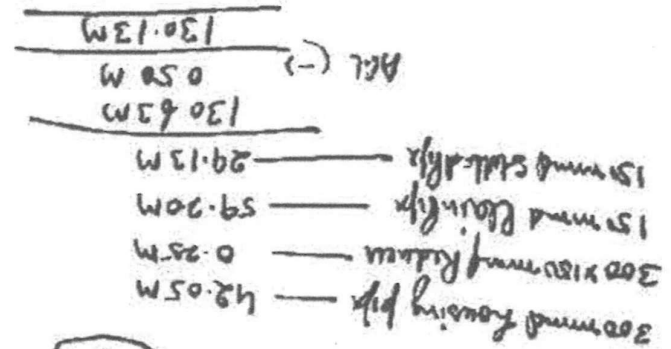 300 mmd housing pipe — 42.05 M
300 x 150 mm Reducer — 0.25 M
150 mmd Plain Pipe — 59.20 M
150 mmd Slotted Pipe — 29.13 M
130.63 M
AGL (-) 0.50 M
130.13 M